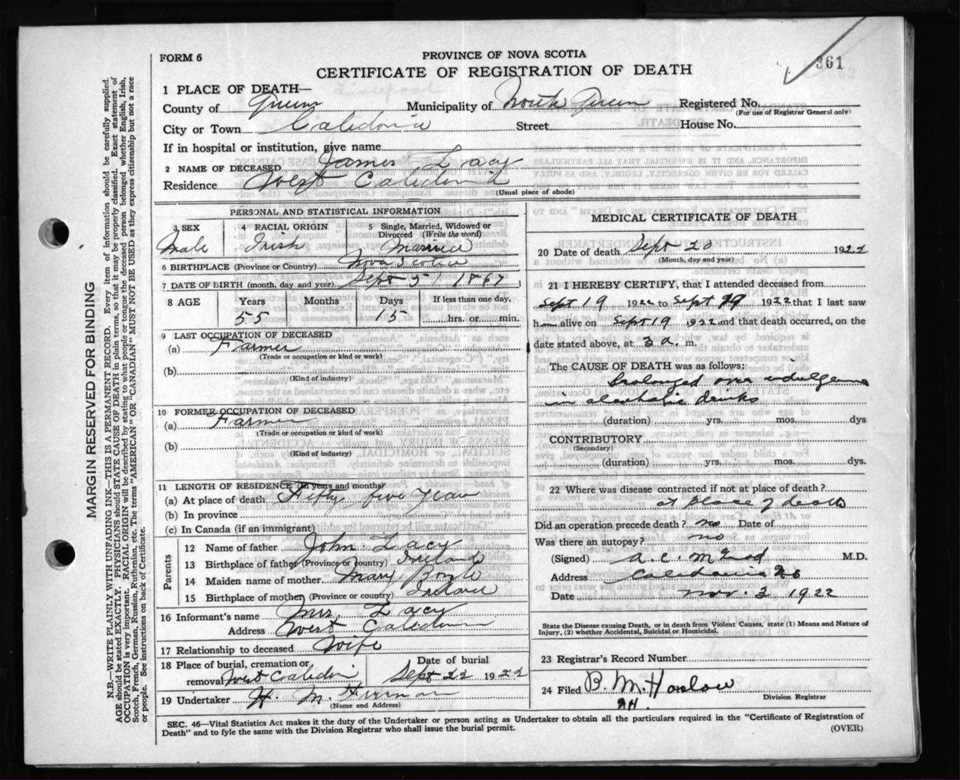 361
FORM 6
PROVINCE OF NOVA SCOTIA
CERTIFICATE OF REGISTRATION OF DEATH
1 PLACE OF DEATH—
County of Queens Municipality of North Queens Registered No.
(For use of Registrar General only)
City or Town Caledonia Street House No.
If in hospital or institution, give name
2 NAME OF DECEASED James Lacy
Residence West Caledonia
(Usual place of abode)
PERSONAL AND STATISTICAL INFORMATION
3 SEX 4 RACIAL ORIGIN 5 Single, Married, Widowed or Divorced (Write the word)
Male Irish Married
6 BIRTHPLACE (Province or Country) Nova Scotia
7 DATE OF BIRTH (month, day and year) Sept 5 1867
8 AGE Years Months Days If less than one day,
55 15 hrs. or min.
9 LAST OCCUPATION OF DECEASED
(a) Farmer
(Trade or occupation or kind or work)
(b)
(Kind of industry)
10 FORMER OCCUPATION OF DECEASED
(a) Farmer
(Trade or occupation or kind or work)
(b)
(Kind of industry)
11 LENGTH OF RESIDENCE (in years and months)
(a) At place of death Fifty five years
(b) In province
(c) In Canada (if an immigrant)
Parents
12 Name of father John Lacy
13 Birthplace of father (Province or country) Ireland
14 Maiden name of mother Mary Boyle
15 Birthplace of mother (Province or country) Ireland
16 Informant's name Mrs. Lacy
Address West Caledonia
17 Relationship to deceased Wife
18 Place of burial, cremation or removal West Caledonia Date of burial Sept 22 1922
19 Undertaker H. M. Freeman
(Name and Address)
MEDICAL CERTIFICATE OF DEATH
20 Date of death Sept 20 1922
(Month, day and year)
21 I HEREBY CERTIFY, that I attended deceased from
Sept 19 1922 to Sept 19 1922 that I last saw
him alive on Sept 19 1922 and that death occurred, on the
date stated above, at 3 a. m.
The CAUSE OF DEATH was as follows:
Prolonged over indulgence
in alcoholic drinks
(duration) yrs. mos. dys
CONTRIBUTORY
(Secondary)
(duration) yrs. mos. dys.
22 Where was disease contracted if not at place of death?
at place of death
Did an operation precede death? no Date of
Was there an autopsy? no
(Signed) A. C. M. D.
Address Caledonia
Date Nov. 3 1922
State the Disease causing Death, or in death from Violent Causes, state (1) Means and Nature of
Injury, (2) whether Accidental, Suicidal or Homicidal.
23 Registrar's Record Number
24 Filed B. M. Harlow
Division Registrar
SEC. 46—Vital Statistics Act makes it the duty of the Undertaker or person acting as Undertaker to obtain all the particulars required in the "Certificate of Registration of
Death" and to fyle the same with the Division Registrar who shall issue the burial permit.
(OVER)
MARGIN RESERVED FOR BINDING
N.B.—WRITE PLAINLY WITH UNFADING INK—THIS IS A PERMANENT RECORD. Every item of information should be carefully supplied.
AGE should be stated EXACTLY. PHYSICIANS should STATE CAUSE OF DEATH in plain terms, so that it may be properly classified. Exact statement of
OCCUPATION is very important. RACIAL ORIGIN will be described by stating to what people or tongue the deceased person belonged whether English, Irish,
Scotch, French, German, Russian, Ruthenian, etc. The terms "AMERICAN" OR "CANADIAN" MUST NOT BE USED as they express citizenship but not a race
or people. See instructions on back of Certificate.